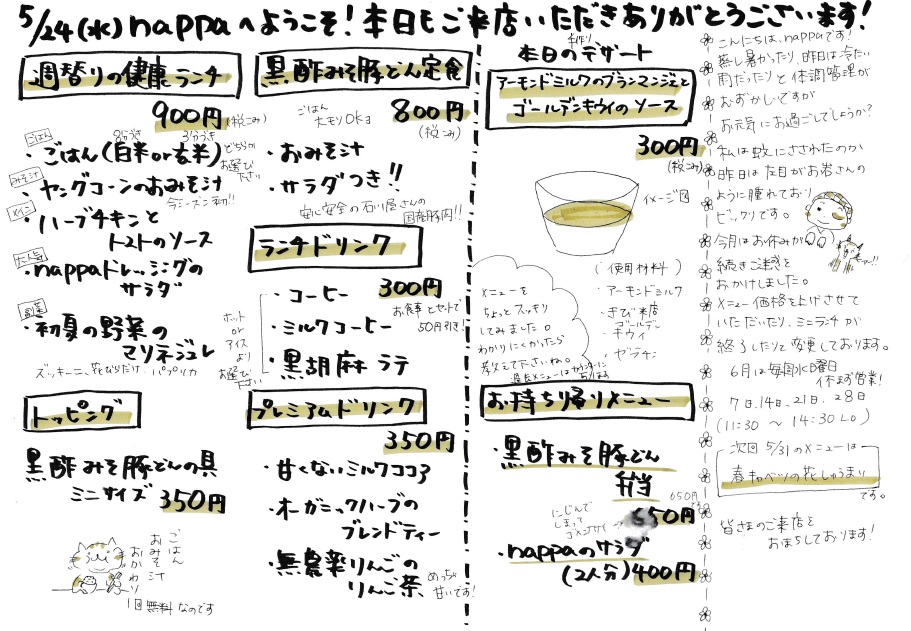 5/24(水)nappaへようこそ！本日もご来店いただきありがとうございます！
週替りの健康ランチ
900円(税込み)
ごはん
8分づき 3分づき
・ごはん(白米or玄米)
どちらか
お選び
下さい
みそ汁
・ヤングコーンのおみそ汁
今シーズン初!!
メイン
・ハーブチキンと
トマトのソース
・nappaドレッシングの
サラダ
副菜
・初夏の野菜の
マリネジュレ
ズッキーニ、花びらだけ、パプリカ
トッピング
黒酢みそ豚どんの具
ミニサイズ 350円
ごはん
おみそ汁
おかわり
1回無料なのです
黒酢みそ豚どん定食
ごはん
大モリOKョ
800円
(税込み)
・おみそ汁
・サラダつき!!
安心安全の石川屋さんの
国産豚肉!!
ランチドリンク
300円
・コーヒー
お食事とセットで
50円引き！
・ミルクコーヒー
・黒胡麻ラテ
ホット
or
アイス
より
お選び
下さい
プレミアムドリンク
350円
・甘くないミルクココア
・オーガニックハーブの
ブレンドティー
・無農薬りんごの
りんご茶
めっちゃ
甘いです！
手作り
本日のデザート
アーモンドミルクのブランマンジェと
ゴールデンキウイのソース
300円
(税込み)
イメージ図
(使用材料)
・アーモンドミルク
・きび砂糖
・ゴールデン
キウイ
・ゼラチン
メニューを
ちょっとスッキリ
してみました。
わかりにくかったら
教えて下さいね。
お持ち帰りメニュー
・黒酢みそ豚どん
弁当
650円
です
650円
にじんで
しまって
ゴメンナサイ
・nappaのサラダ
(2人分)400円
こんにちは、nappaです！
蒸し暑かったり、昨日は冷たい
雨だったりと体調管理が
むずかしいですが
お元気にお過ごしでしょうか？
私は蚊にさされたのか
昨日は左目がお岩さんの
ように腫れており
ビックリです。
今月はお休みが
続きご迷惑を
おかけしました。
メニュー価格を上げさせて
いただいたり、ミニランチが
終了したりと変更しております。
6月は毎週水曜日
休まず営業！
7日.14日.21日.28日
(11:30 〜 14:30 LO)
次回5/31のメニューは
春キャベツの花しゅうまい
です。
皆さまのご来店を
おまちしております！